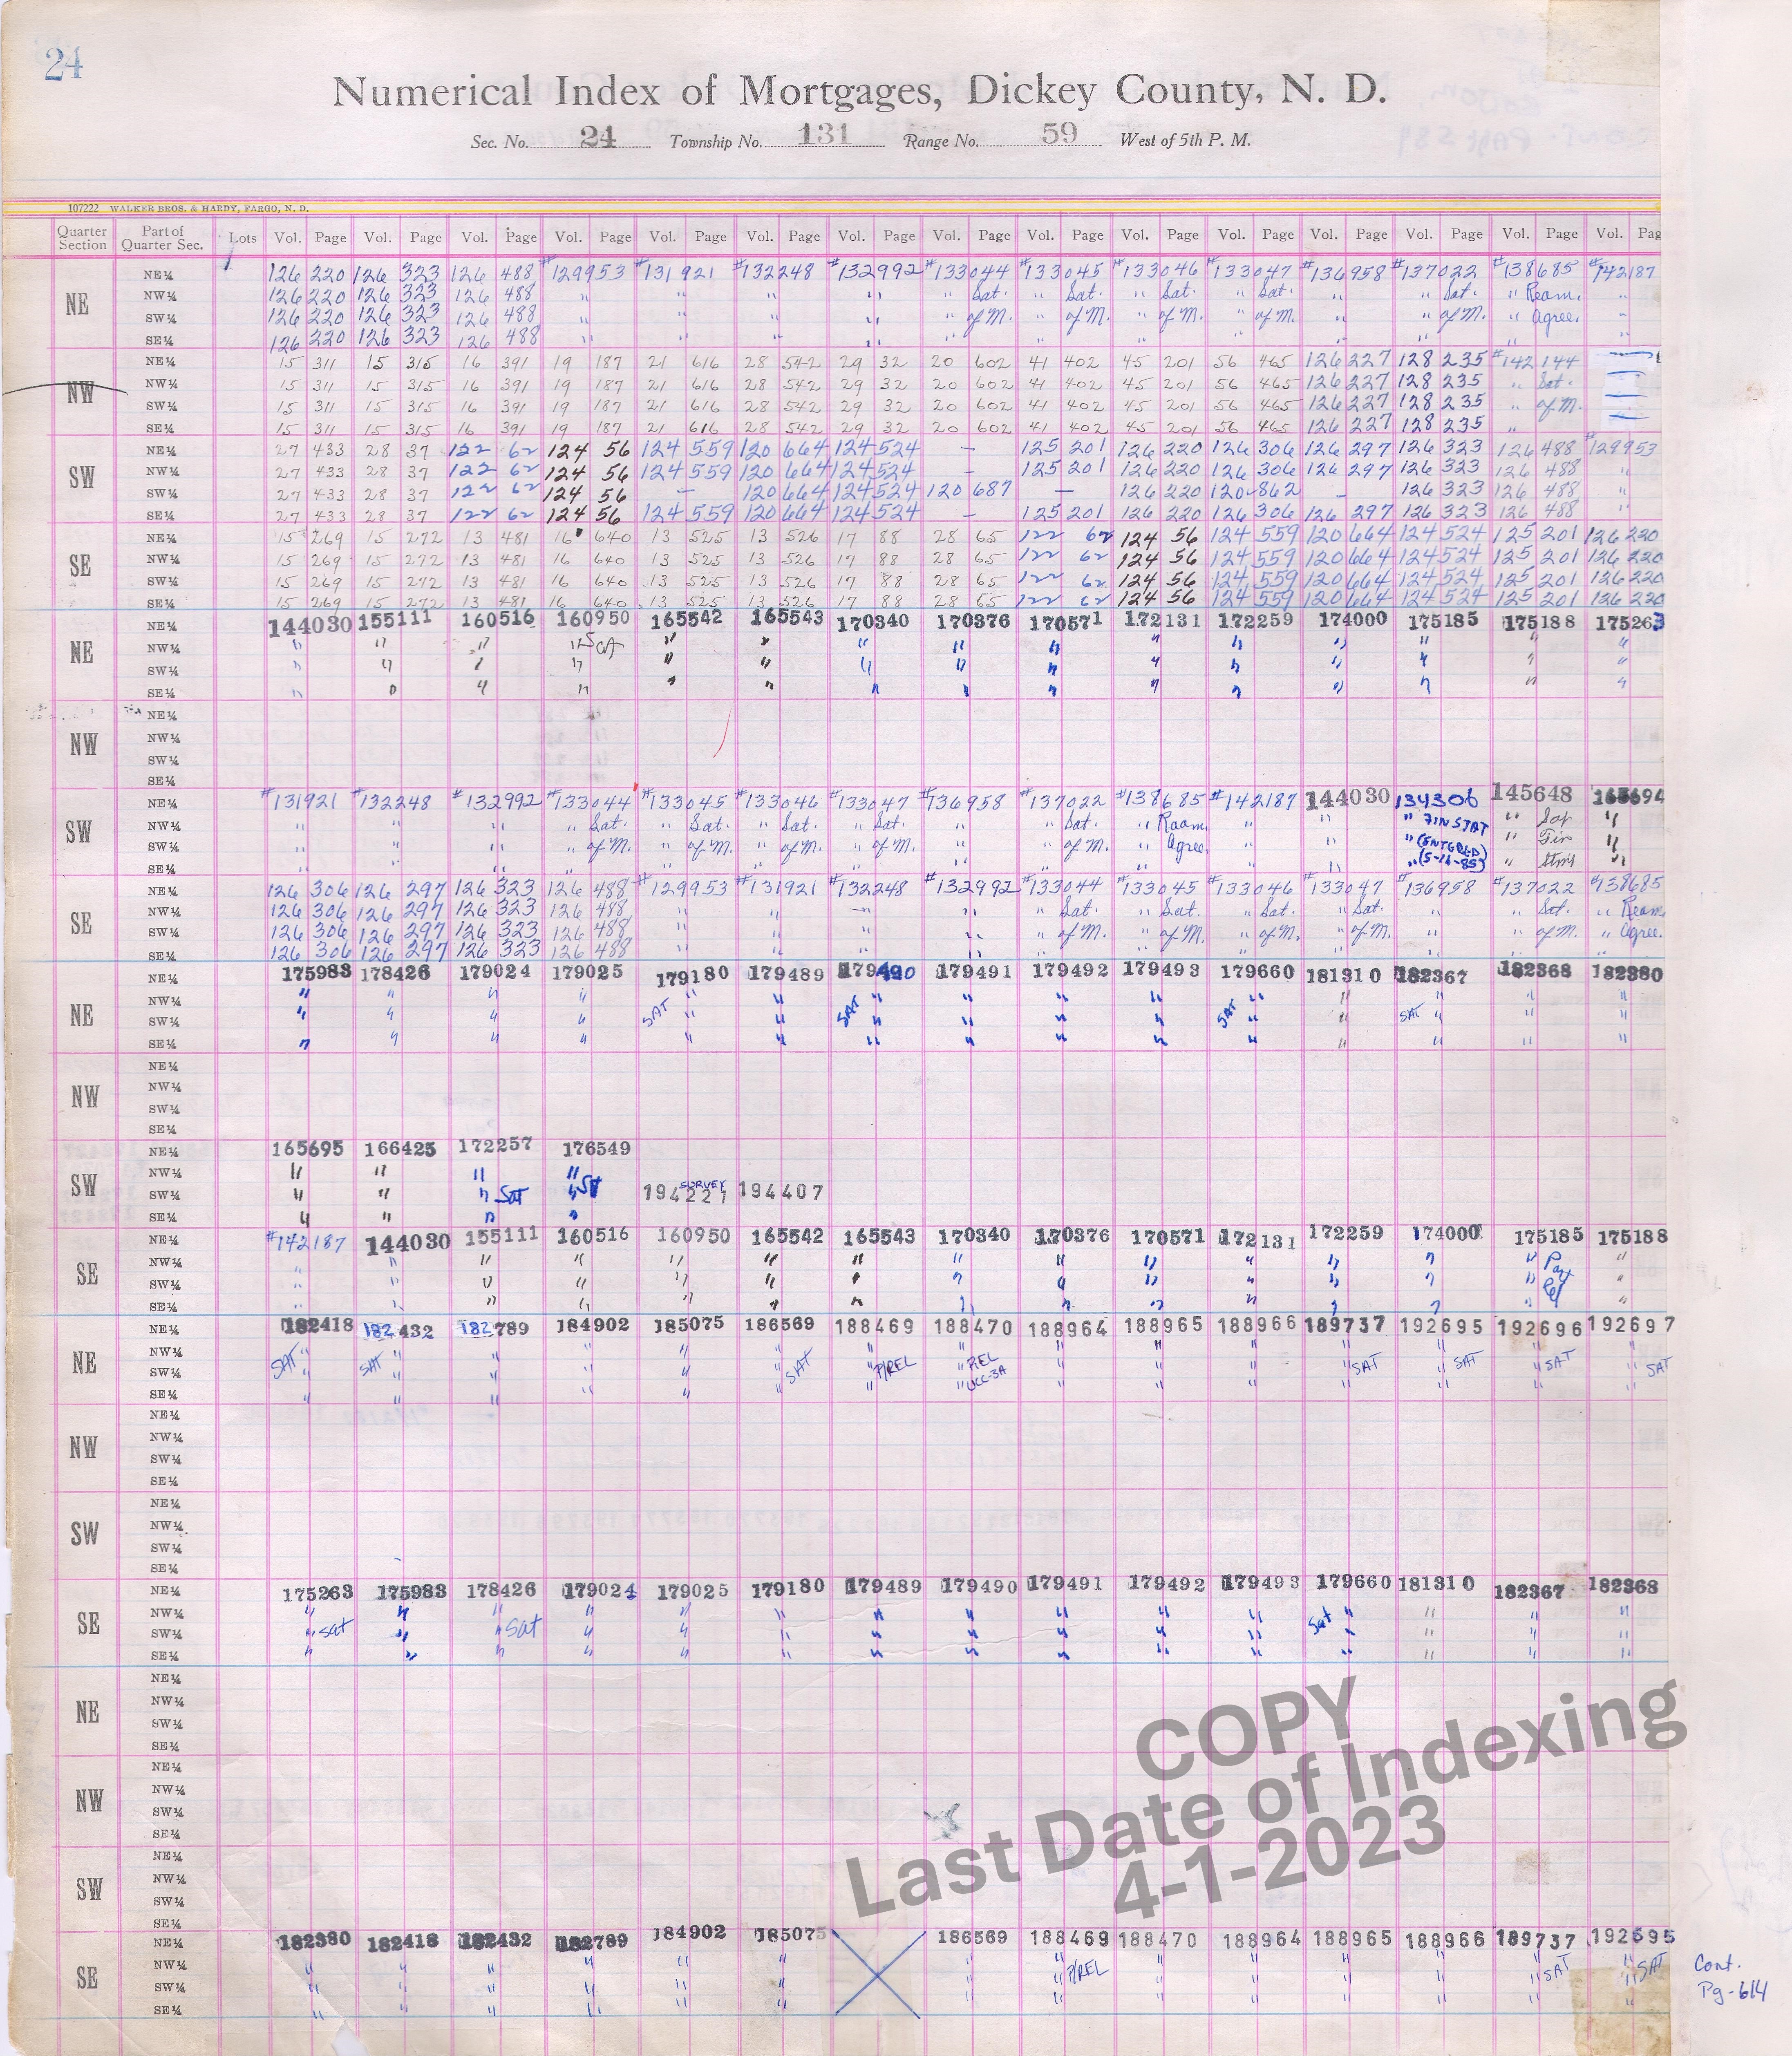 24
Numerical Index of Mortgages, Dickey County, N. D.
Sec. No. 24 Township No. 131 Range No. 59 West of 5th P. M.
107222 WALKER BROS. & HARDY, FARGO, N. D.
Quarter Section Part of Quarter Sec. Lots Vol. Page Vol. Page Vol. Page Vol. Page Vol. Page Vol. Page Vol. Page Vol. Page Vol. Page Vol. Page Vol. Page Vol. Page Vol. Page Vol. Page Vol. Pag
NE
NE¼ 126 220 126 323 126 488 #129953 #131921 #132248 #132992 #133044 #133045 #133046 #133047 #136958 #137022 #138685 #142187
NW¼ 126 220 126 323 126 488 " " " " " Sat. " Sat. " Sat. " Sat. " " Sat. " Ream. "
SW¼ 126 220 126 323 126 488 " " " " " of M. " of M. " of M. " of M. " " of M. " Agree. "
SE¼ 126 220 126 323 126 488 " " " " " " " " " " " "
NW
NE¼ 15 311 15 315 16 391 19 187 21 616 28 542 29 32 20 602 41 402 45 201 56 465 126 227 128 235 #142144
NW¼ 15 311 15 315 16 391 19 187 21 616 28 542 29 32 20 602 41 402 45 201 56 465 126 227 128 235 " Sat.
SW¼ 15 311 15 315 16 391 19 187 21 616 28 542 29 32 20 602 41 402 45 201 56 465 126 227 128 235 " of M.
SE¼ 15 311 15 315 16 391 19 187 21 616 28 542 29 32 20 602 41 402 45 201 56 465 126 227 128 235 "
SW
NE¼ 27 433 28 37 122 62 124 56 124 559 120 664 124 524 – 125 201 126 220 126 306 126 297 126 323 126 488 #129953
NW¼ 27 433 28 37 122 62 124 56 124 559 120 664 124 524 125 201 126 220 126 306 126 297 126 323 126 488 "
SW¼ 27 433 28 37 122 62 124 56 – 120 664 124 524 120 687 – 126 220 120-862 – 126 323 126 488 "
SE¼ 27 433 28 37 122 62 124 56 124 559 120 664 124 524 – 125 201 126 220 126 306 126 297 126 323 126 488 "
SE
NE¼ 15 269 15 272 13 481 16 640 13 525 13 526 17 88 28 65 122 62 124 56 124 559 120 664 124 524 125 201 126 220
NW¼ 15 269 15 272 13 481 16 640 13 525 13 526 17 88 28 65 122 62 124 56 124 559 120 664 124 524 125 201 126 220
SW¼ 15 269 15 272 13 481 16 640 13 525 13 526 17 88 28 65 122 62 124 56 124 559 120 664 124 524 125 201 126 220
SE¼ 15 269 15 272 13 481 16 640 13 525 13 526 17 88 28 65 122 62 124 56 124 559 120 664 124 524 125 201 126 220
NE
NE¼ 144030 155111 160516 160950 165542 165543 170340 170376 170571 172131 172259 174000 175185 175188 175263
NW¼ " " " " Sat " " " " " " " " " " "
SW¼ " " " " " " " " " " " " " " "
SE¼ " " " " " " " " " " " " " " "
NW
NE¼
NW¼
SW¼
SE¼
SW
NE¼ #131921 #132248 #132992 #133044 #133045 #133046 #133047 #136958 #137022 #138685 #142187 144030 134306 145648 165694
NW¼ " " " " Sat. " Sat. " Sat. " Sat. " " Sat. " Ream. " " " FIN STAT " Sat "
SW¼ " " " " of M. " of M. " of M. " of M. " " of M. " Agree. " " " (ENTERED " Fin "
SE¼ " " " " " " " " " " " " " (5-16-85) " Stmt "
SE
NE¼ 126 306 126 297 126 323 126 488 #129953 #131921 #132248 #132992 #133044 #133045 #133046 #133047 #136958 #137022 #138685
NW¼ 126 306 126 297 126 323 126 488 " " " " " Sat. " Sat. " Sat. " Sat. " " Sat. " Ream.
SW¼ 126 306 126 297 126 323 126 488 " " " " " of M. " of M. " of M. " of M. " " of M. " Agree.
SE¼ 126 306 126 297 126 323 126 488 " " " " " " " " " " "
NE
NE¼ 175983 178426 179024 179025 179180 179489 179490 179491 179492 179493 179660 181310 182367 182368 182380
NW¼ " " " " " " " " " " " " " " "
SW¼ " " " " SAT " " SAT " " " " SAT " " SAT " " "
SE¼ " " " " " " " " " " " " " " "
NW
NE¼
NW¼
SW¼
SE¼
SW
NE¼ 165695 166425 172257 176549
NW¼ " " " "
SW¼ " " " Sat " Sat 194221 SURVEY 194407
SE¼ " " " "
SE
NE¼ #142187 144030 155111 160516 160950 165542 165543 170340 170376 170571 172131 172259 174000 175185 175188
NW¼ " " " " " " " " " " " " " " Part "
SW¼ " " " " " " " " " " " " " " Rel "
SE¼ " " " " " " " " " " " " " " "
NE
NE¼ 182418 182432 182789 184902 185075 186569 188469 188470 188964 188965 188966 189737 192695 192696 192697
NW¼ " " " " " " " " " " " " " " "
SW¼ SAT " SAT " " " " " SAT " P/REL " REL " " " " SAT " SAT " SAT " SAT
SE¼ " " " " " " " " UCC-3A " " " " " " "
NW
NE¼
NW¼
SW¼
SE¼
SW
NE¼
NW¼
SW¼
SE¼
SE
NE¼ 175263 175983 178426 179024 179025 179180 179489 179490 179491 179492 179493 179660 181310 182367 182368
NW¼ " " " " " " " " " " " " " " "
SW¼ " Sat " " Sat " " " " " " " " Sat " " " "
SE¼ " " " " " " " " " " " " " " "
NE
NE¼
NW¼
SW¼
SE¼
NW
NE¼
NW¼
SW¼
SE¼
SW
NE¼
NW¼
SW¼
SE¼
SE
NE¼ 182380 182418 182432 182789 184902 185075 186569 188469 188470 188964 188965 188966 189737 192695
NW¼ " " " " " " " " P/REL " " " " " SAT " SAT
SW¼ " " " " " " " " " " " " " "
SE¼ " " " " " " " " " " " " " "
Cont.
Pg-614
COPY
Last Date of Indexing
4-1-2023